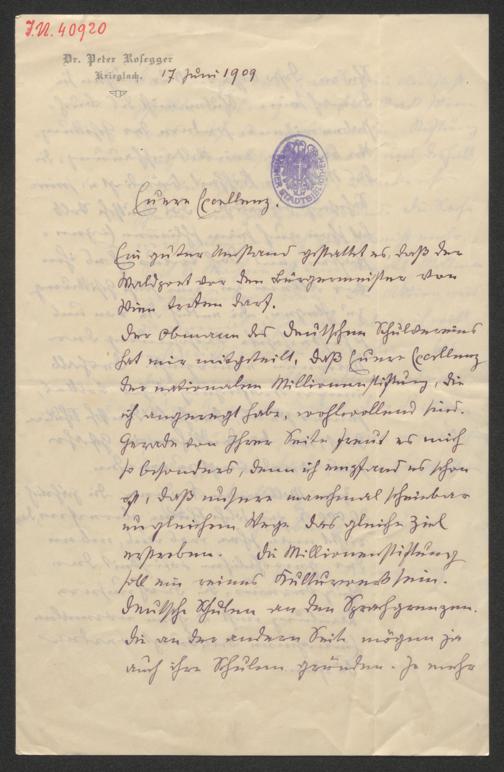 J.N. 40920
Dr. Peter Rosegger
Krieglach.
17 Juni 1909
STADTBIBLIOTHEK
Euere Excellenz.
Ein guter Umstand gestattet es, daß der
Waldpoet vor den Bürgermeister von
Wien treten darf.
Der Obmann des deutschen Schulvereins
hat mir mitgeteilt, daß Euere Excellenz
der nationalen Millionenstiftung, die
ich angeregt habe, wohlwollend sind.
Gerade von Ihrer Seite freut es mich
so besonders, denn ich empfand es schon
oft, daß unsere manchmal scheinbar
ungleichen Wege das gleiche Ziel
erstreben. Die Millionenstiftung
soll ein reines Kulturwerk sein.
Deutsche Schulen an den Sprachgrenzen.
Die an der andern Seite mögen ja
auch ihre Schulen gründen. Je mehr